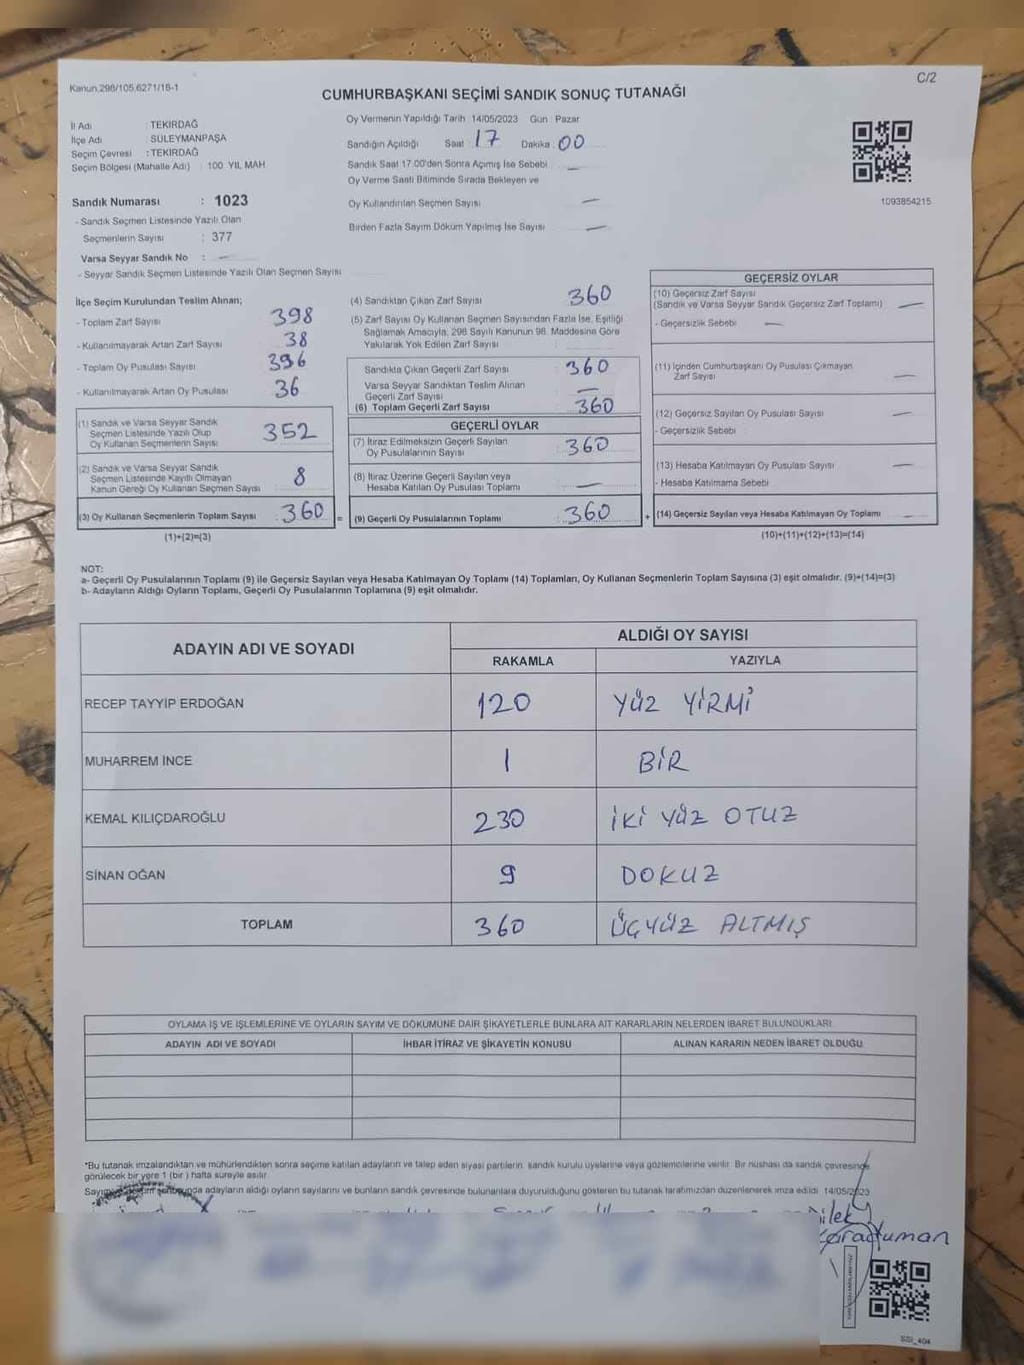 C/2
Kanun,298/105,6271/18-1
CUMHURBAŞKANI SEÇİMİ SANDIK SONUÇ TUTANAĞI
İl Adı : TEKİRDAĞ
İlçe Adı : SÜLEYMANPAŞA
Seçim Çevresi : TEKİRDAĞ
Seçim Bölgesi (Mahalle Adı) : 100 YIL MAH
Oy Vermenin Yapıldığı Tarih 14/05/2023 Gün Pazar
Sandığın Açıldığı Saat 17 Dakika 00
Sandık Saat 17.00'den Sonra Açımış İse Sebebi —
Oy Verme Saati Bitiminde Sırada Bekleyen ve
Oy Kullandırılan Seçmen Sayısı —
Birden Fazla Sayım Döküm Yapılmış İse Sayısı —
1093854215
Sandık Numarası : 1023
- Sandık Seçmen Listesinde Yazılı Olan
Seçmenlerin Sayısı : 377
Varsa Seyyar Sandık No : —
- Seyyar Sandık Seçmen Listesinde Yazılı Olan Seçmen Sayısı
İlçe Seçim Kurulundan Teslim Alınan;
- Toplam Zarf Sayısı 398
- Kullanılmayarak Artan Zarf Sayısı 38
- Toplam Oy Pusulası Sayısı 396
- Kullanılmayarak Artan Oy Pusulası 36
(1) Sandık ve Varsa Seyyar Sandık
Seçmen Listesinde Yazılı Olup
Oy Kullanan Seçmenlerin Sayısı 352
(2) Sandık ve Varsa Seyyar Sandık
Seçmen Listesinde Kayıtlı Olmayan
Kanun Gereği Oy Kullanan Seçmen Sayısı 8
(3) Oy Kullanan Seçmenlerin Toplam Sayısı 360
(1)+(2)=(3)
(4) Sandıktan Çıkan Zarf Sayısı 360
(5) Zarf Sayısı Oy Kullanan Seçmen Sayısından Fazla İse, Eşitliği
Sağlamak Amacıyla, 298 Sayılı Kanunun 98. Maddesine Göre
Yakılarak Yok Edilen Zarf Sayısı
Sandıkta Çıkan Geçerli Zarf Sayısı : 360
Varsa Seyyar Sandıktan Teslim Alınan
Geçerli Zarf Sayısı —
(6) Toplam Geçerli Zarf Sayısı 360
GEÇERLİ OYLAR
(7) İtiraz Edilmeksizin Geçerli Sayılan
Oy Pusulalarının Sayısı : 360
(8) İtiraz Üzerine Geçerli Sayılan veya
Hesaba Katılan Oy Pusulası Toplamı —
= (9) Geçerli Oy Pusulalarının Toplamı : 360
GEÇERSİZ OYLAR
(10) Geçersiz Zarf Sayısı
(Sandık ve Varsa Seyyar Sandık Geçersiz Zarf Toplamı) —
- Geçersizlik Sebebi —
(11) İçinden Cumhurbaşkanı Oy Pusulası Çıkmayan
Zarf Sayısı —
(12) Geçersiz Sayılan Oy Pusulası Sayısı —
- Geçersizlik Sebebi
(13) Hesaba Katılmayan Oy Pusulası Sayısı —
- Hesaba Katılmama Sebebi
+ (14) Geçersiz Sayılan veya Hesaba Katılmayan Oy Toplamı —
(10)+(11)+(12)+(13)=(14)
NOT:
a- Geçerli Oy Pusulalarının Toplamı (9) ile Geçersiz Sayılan veya Hesaba Katılmayan Oy Toplamı (14) Toplamları, Oy Kullanan Seçmenlerin Toplam Sayısına (3) eşit olmalıdır. (9)+(14)=(3)
b- Adayların Aldığı Oyların Toplamı, Geçerli Oy Pusulalarının Toplamına (9) eşit olmalıdır.
ADAYIN ADI VE SOYADI
ALDIĞI OY SAYISI
RAKAMLA YAZIYLA
RECEP TAYYİP ERDOĞAN 120 YÜZ YİRMİ
MUHARREM İNCE 1 BİR
KEMAL KILIÇDAROĞLU 230 İKİ YÜZ OTUZ
SİNAN OĞAN 9 DOKUZ
TOPLAM 360 ÜÇYÜZ ALTMIŞ
OYLAMA İŞ VE İŞLEMLERİNE VE OYLARIN SAYIM VE DÖKÜMÜNE DAİR ŞİKAYETLERLE BUNLARA AİT KARARLARIN NELERDEN İBARET BULUNDUKLARI
ADAYIN ADI VE SOYADI İHBAR İTİRAZ VE ŞİKAYETİN KONUSU ALINAN KARARIN NEDEN İBARET OLDUĞU
*Bu tutanak imzalandıktan ve mühürlendikten sonra seçime katılan adayların ve talep eden siyasi partilerin, sandık kurulu üyelerine veya gözlemcilerine verilir. Bir nüshası da sandık çevresinde
görülecek bir yere 1 (bir) hafta süreyle asılır.
adayların aldığı oyların sayılarını ve bunların sandık çevresinde bulunanlara duyurulduğunu gösteren bu tutanak tarafımızdan düzenlenerek imza edildi. 14/05/2023
Dilek
Karaduman
SSI_404